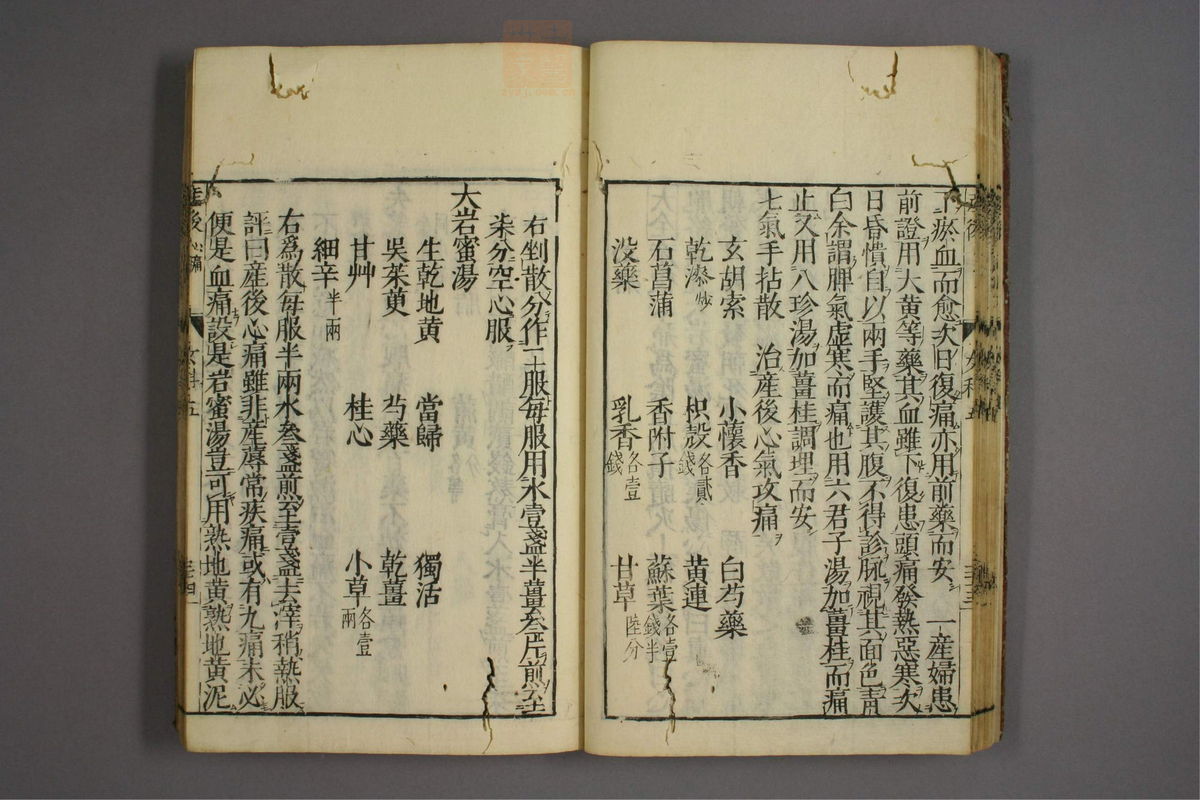 下瘀血而愈次日復痛亦用前藥而安 一產婦患
前證用大黄等藥其血雖下復患頭痛發熱惡寒次
日昏憒自以兩手堅護其腹不得診脉視其面色青
白余謂脾氣虚寒而痛也用六君子湯加薑桂而痛
止又用八珍湯加薑桂調理而安
七氣手拈散 治產後心氣攻痛
玄胡索 小懷香 白芍藥
乾漆炒 枳殼各貳錢 黄連
石菖蒲 香附子 蘇葉各壹錢半
没藥 乳香各壹錢 甘草陸分
右剉散分作二服每服用水壹盞半薑叁片煎至
柒分空心服
大岩蜜湯
生乾地黄 當歸 獨活
吳茱萸 芍藥 乾薑
甘艸 桂心 小草各壹兩
細辛半兩
右爲散每服半兩水叁盞煎至壹盞去滓稍熱服
評曰產後心痛雖非產蓐常疾痛或有九痛未必
便是血痛設是岩蜜湯豈可用熟地黄熟地黄泥